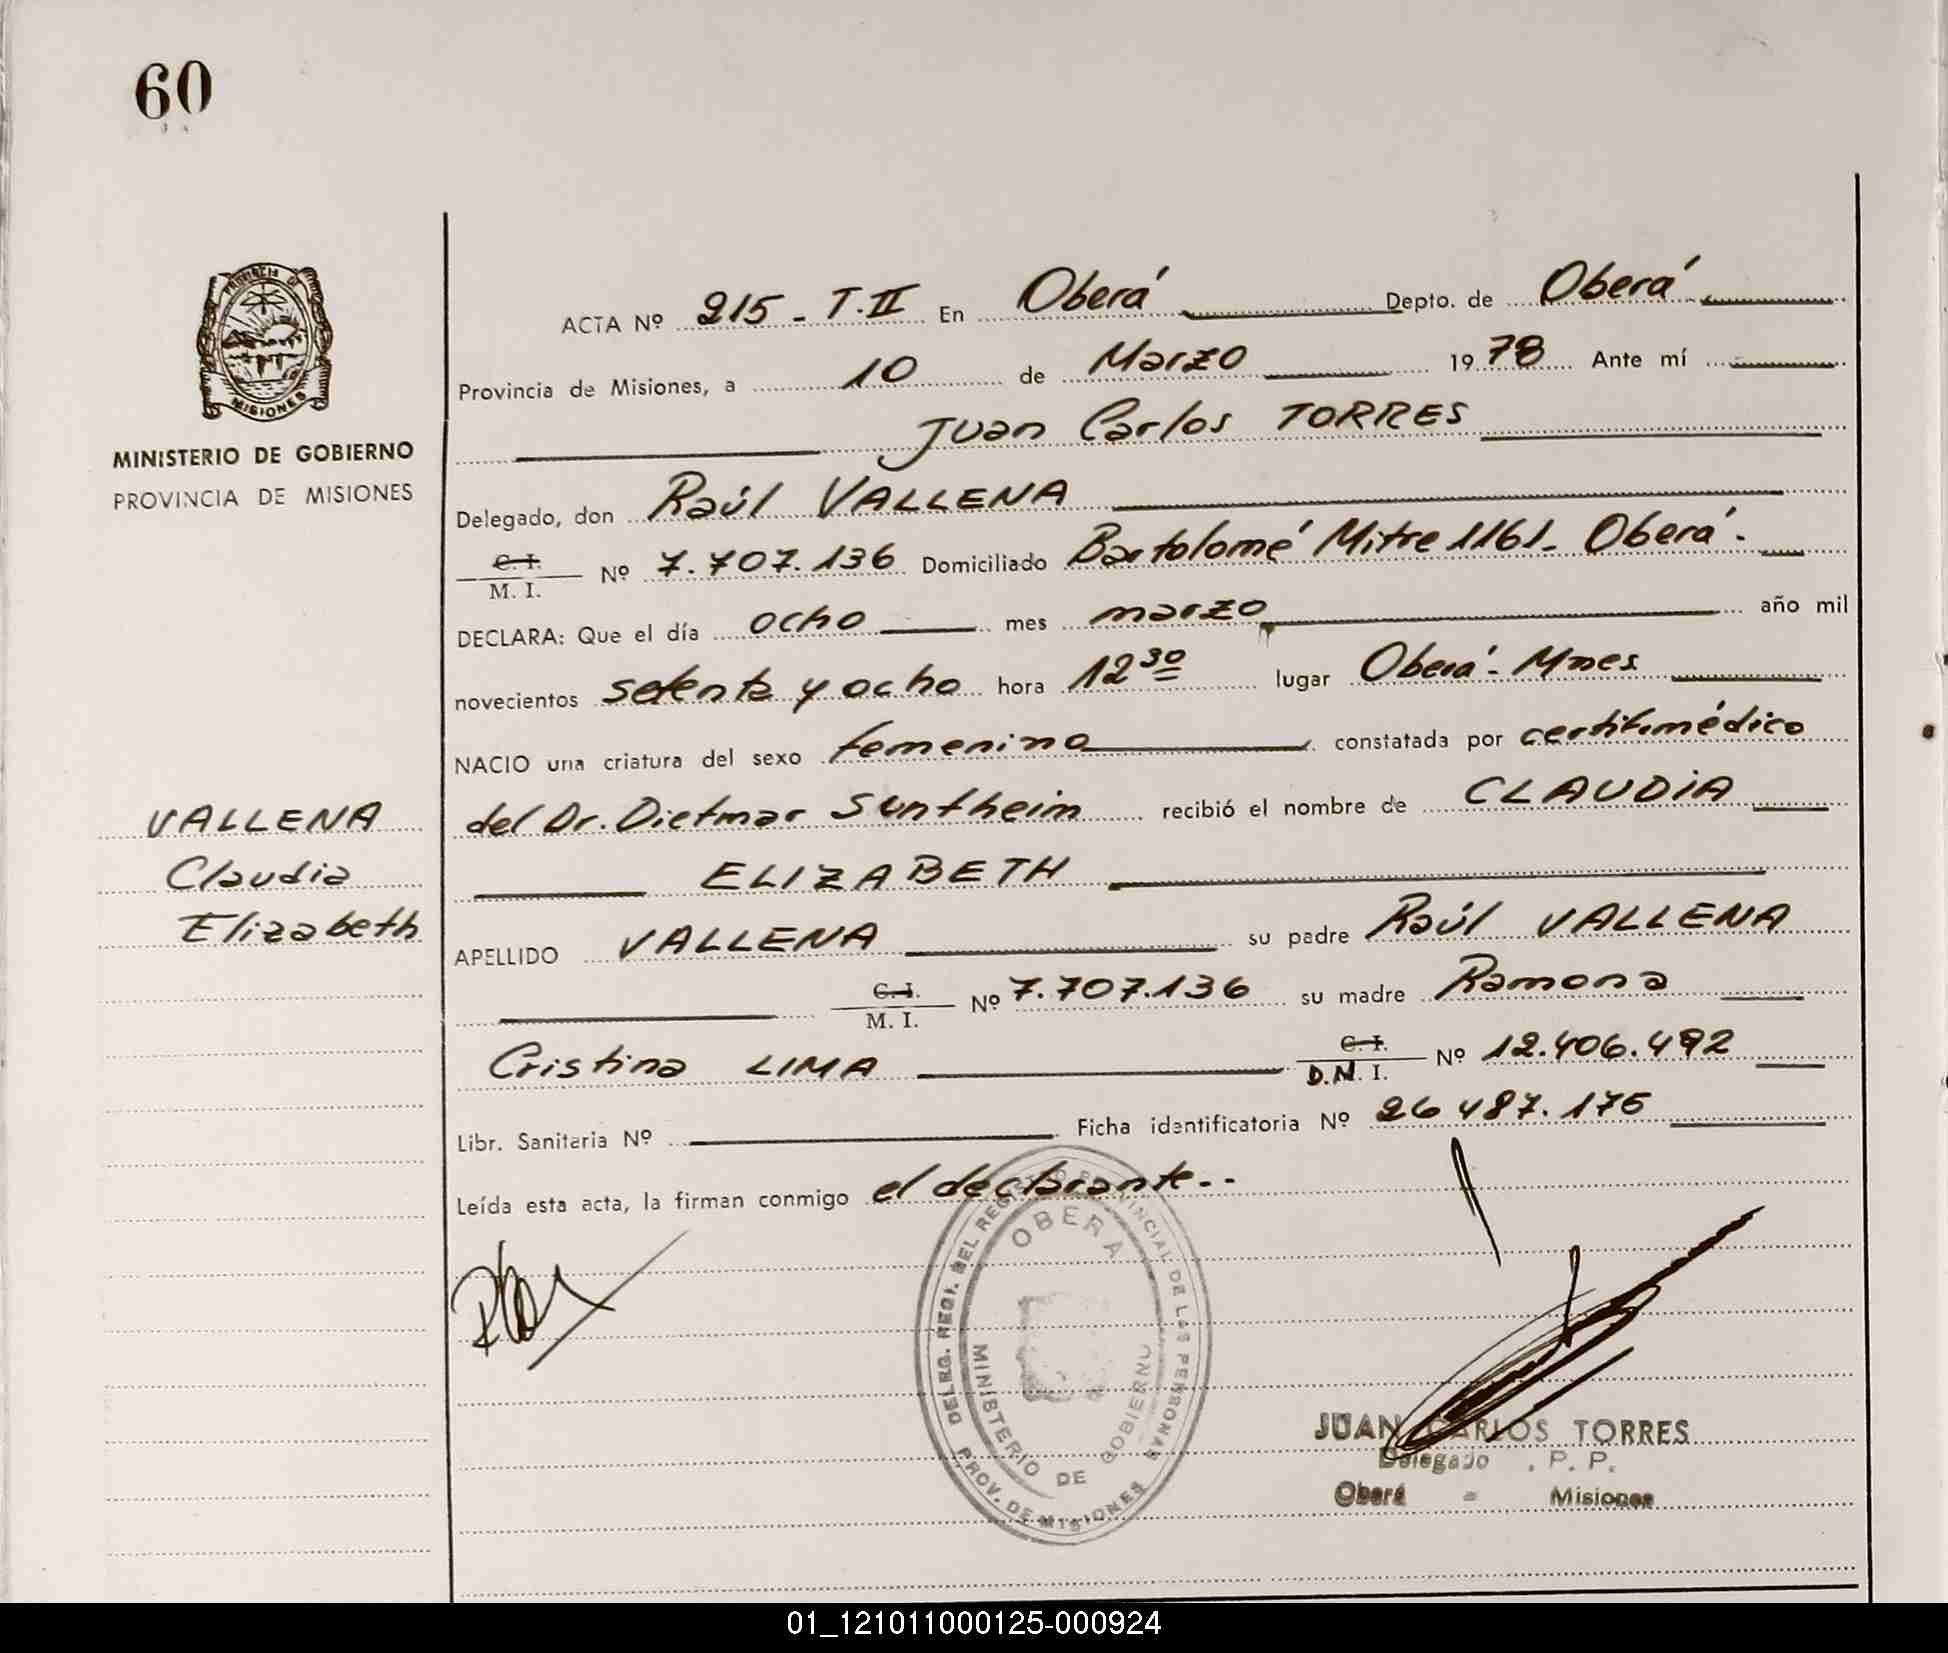 60
PROVINCIA DE
MISIONES
MINISTERIO DE GOBIERNO
PROVINCIA DE MISIONES
VALLENA
Claudia
Elizabeth
ACTA Nº 215 - T.II En Oberá Depto. de Oberá
Provincia de Misiones, a 10 de Marzo 1978 Ante mí
Juan Carlos TORRES
Delegado, don Raúl VALLENA
C. I.
M. I. Nº 7.707.136 Domiciliado Bartolomé Mitre 1161- Oberá.
DECLARA: Que el día ocho mes marzo año mil
novecientos setenta y ocho hora 12 30 lugar Oberá - Mnes
NACIO una criatura del sexo femenino constatada por certif. médico
del Dr. Dietmar Suntheim recibió el nombre de CLAUDIA
ELIZABETH
APELLIDO VALLENA su padre Raúl VALLENA
C. I.
M. I. Nº 7.707.136 su madre Ramona
Cristina LIMA C. I.
D.N. I. Nº 12.406.492
Libr. Sanitaria Nº Ficha identificatoria Nº 26 487.175
Leída esta acta, la firman conmigo el declarante..
DELEG. REGI. DEL REGISTRO PROVINCIAL DE LAS PERSONAS
OBERA
MINISTERIO DE GOBIERNO
PROV. DE MISIONES
JUAN CARLOS TORRES
Delegado . P. P.
Oberá - Misiones
01_121011000125-000924